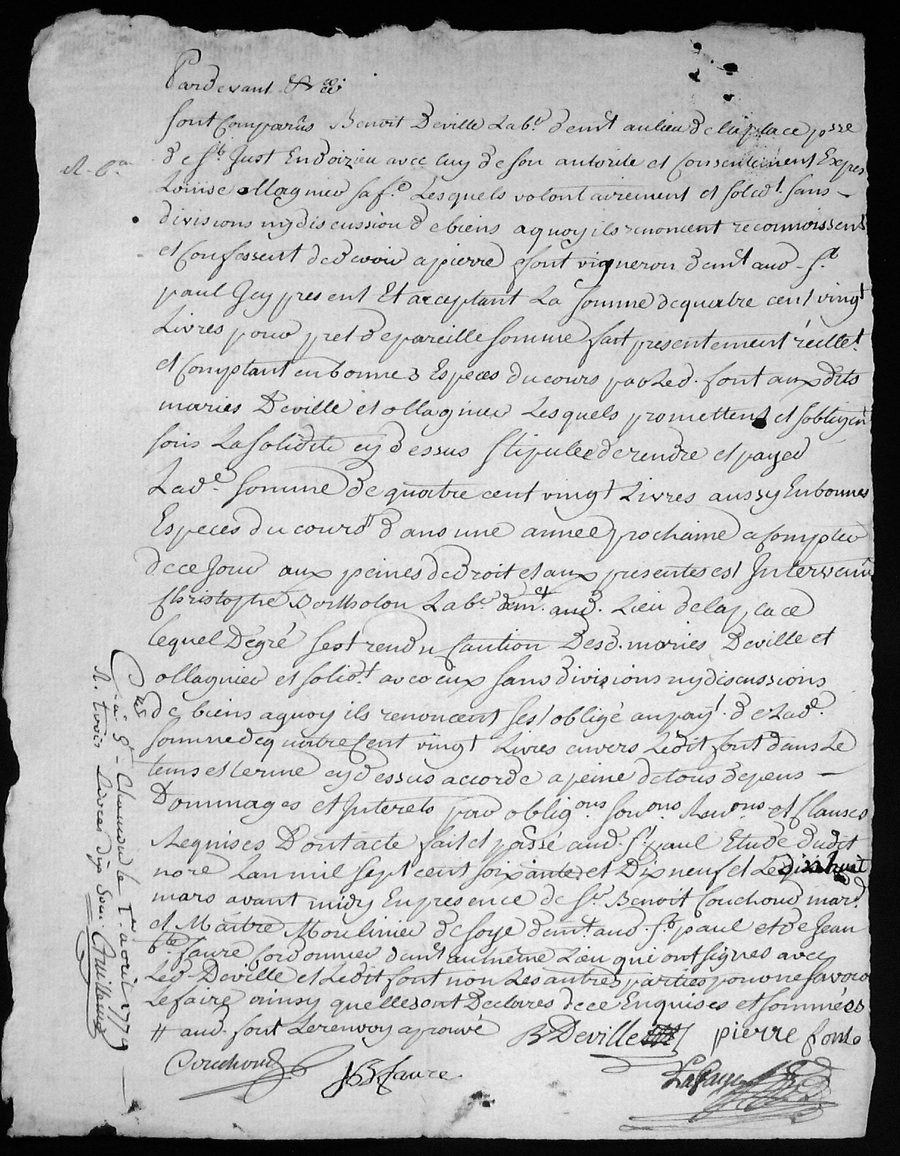 Pardevant &
sont Comparus Benoit Deville Labr demt au lieu de la place psse
de St Just En doizieu avec luy de son autorite et Consentement Expres
R. 6a
Louise ollagnier sa fe Lesquels volontairement et solidt sans
divisions ny discussion de biens a quoy ils renoncent reconnoissent
et Confessent de devoir a pierre font vigneron demt aud. St
paul Gey present Et acceptant La somme de quatre cent vingt
Livres pour pret de pareille somme fait presentement reellet
et Comptant en bonnes Especes du cours par Led. font aux dits
maries Deville et ollagnier Lesquels promettent et sobligent
sous La solidite cy dessus stipulee de rendre et payer
Lade somme de quatre cent vingt Livres aussy En bonnes
Especes du cours # dans une annee prochaine a compter
de ce Jour aux peines de droit et aux presentes est Intervenu
Christophe Bertholon Labr demt aud. Lieu de la place
lequel Degré sest rendu Caution Desd. maries Deville et
ollagnier et solidt avec eux sans divisions ny discussions
de biens a quoy ils renoncent sest obligé au payt de Lade
somme de quatre Cent vingt Livres envers Ledit font dans Le
tems et terme cy dessus accorde a peine de tous depens
Dommages et Interets par obligons souons Renons et Clauses
Requises Dont acte fait et passé aud. St paul Etude dudit
nore Lan mil sept cent soixante et Dix neuf et Le dix huit
mars avant midy En presence de Sr Benoit Couchoud mard
et Maitre Moulinier de soye demt aud. St paul et de Jean
bte faure Cordonnier demt au meme Lieu qui ont signes avec
Led. Deville et Ledit font non Les autres parties pour ne savoir
Le faire ainsy quelles ont Declares de ce Enquises et sommées
# aud. font Le renvoy aprouvé
B Deville pierre font
Couchoud
JB faure
Lafay
Cllé à St Chamond le 1er avril 1779
R. trois Livres dix Sous